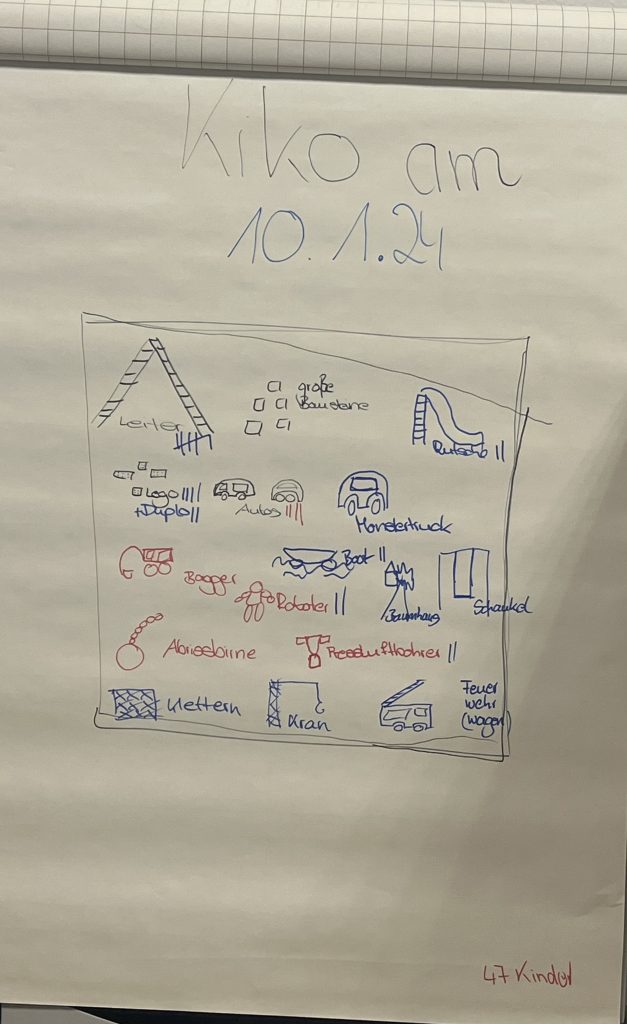 Kiko am
10.1.24
große
Bausteine
Leiter
Rutsche ||
Lego ||||
+Duplo ||
Autos ||||
Monstertruck
Bagger
Boot ||
Roboter ||
Baumhaus
Schaukel
Abrissbirne
Pressluftbohrer ||
Klettern
Kran
Feuer
wehr
(wagen)
47 Kinder